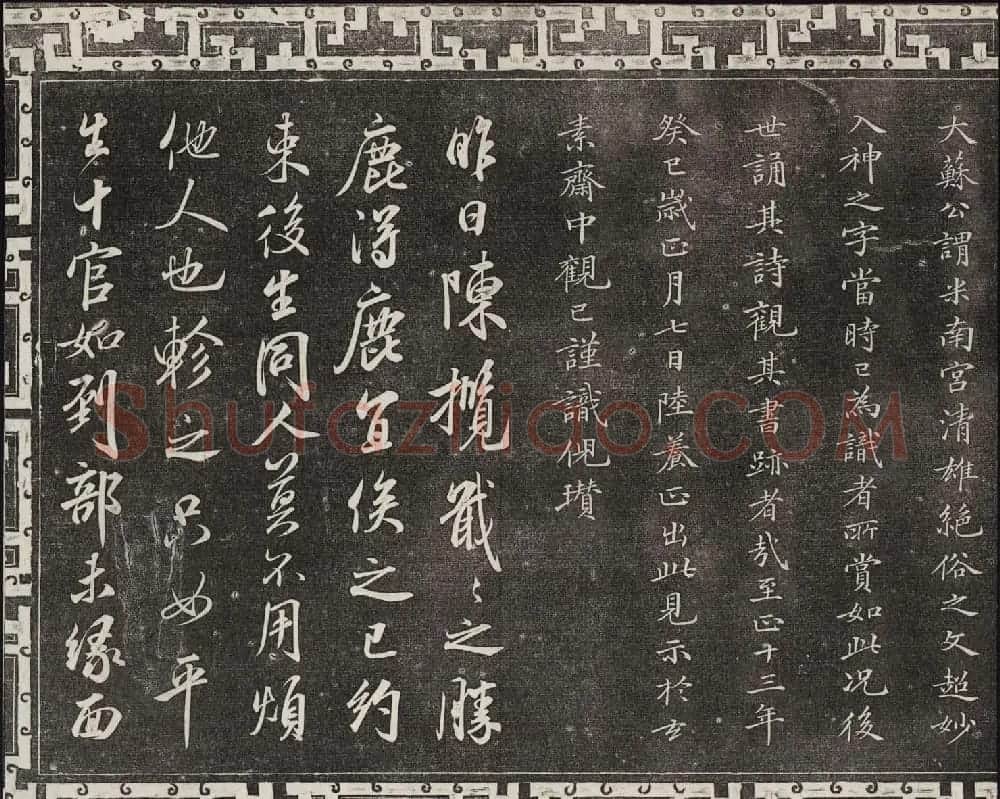 大蘇公謂米南宮清雄絕俗之文超妙
入神之字當時已為識者所賞如此况後
世誦其詩觀其書跡者哉至正十三年
癸巳歲正月七日陸養正出此見示於玄
素齋中觀已謹識倪瓚
昨日陳攬戢戢之勝
鹿得鹿宜俟之已約
束後生同人莫不用煩
他人也軫之只如平
生十官如到部未緣面
Shufaziliao.COM